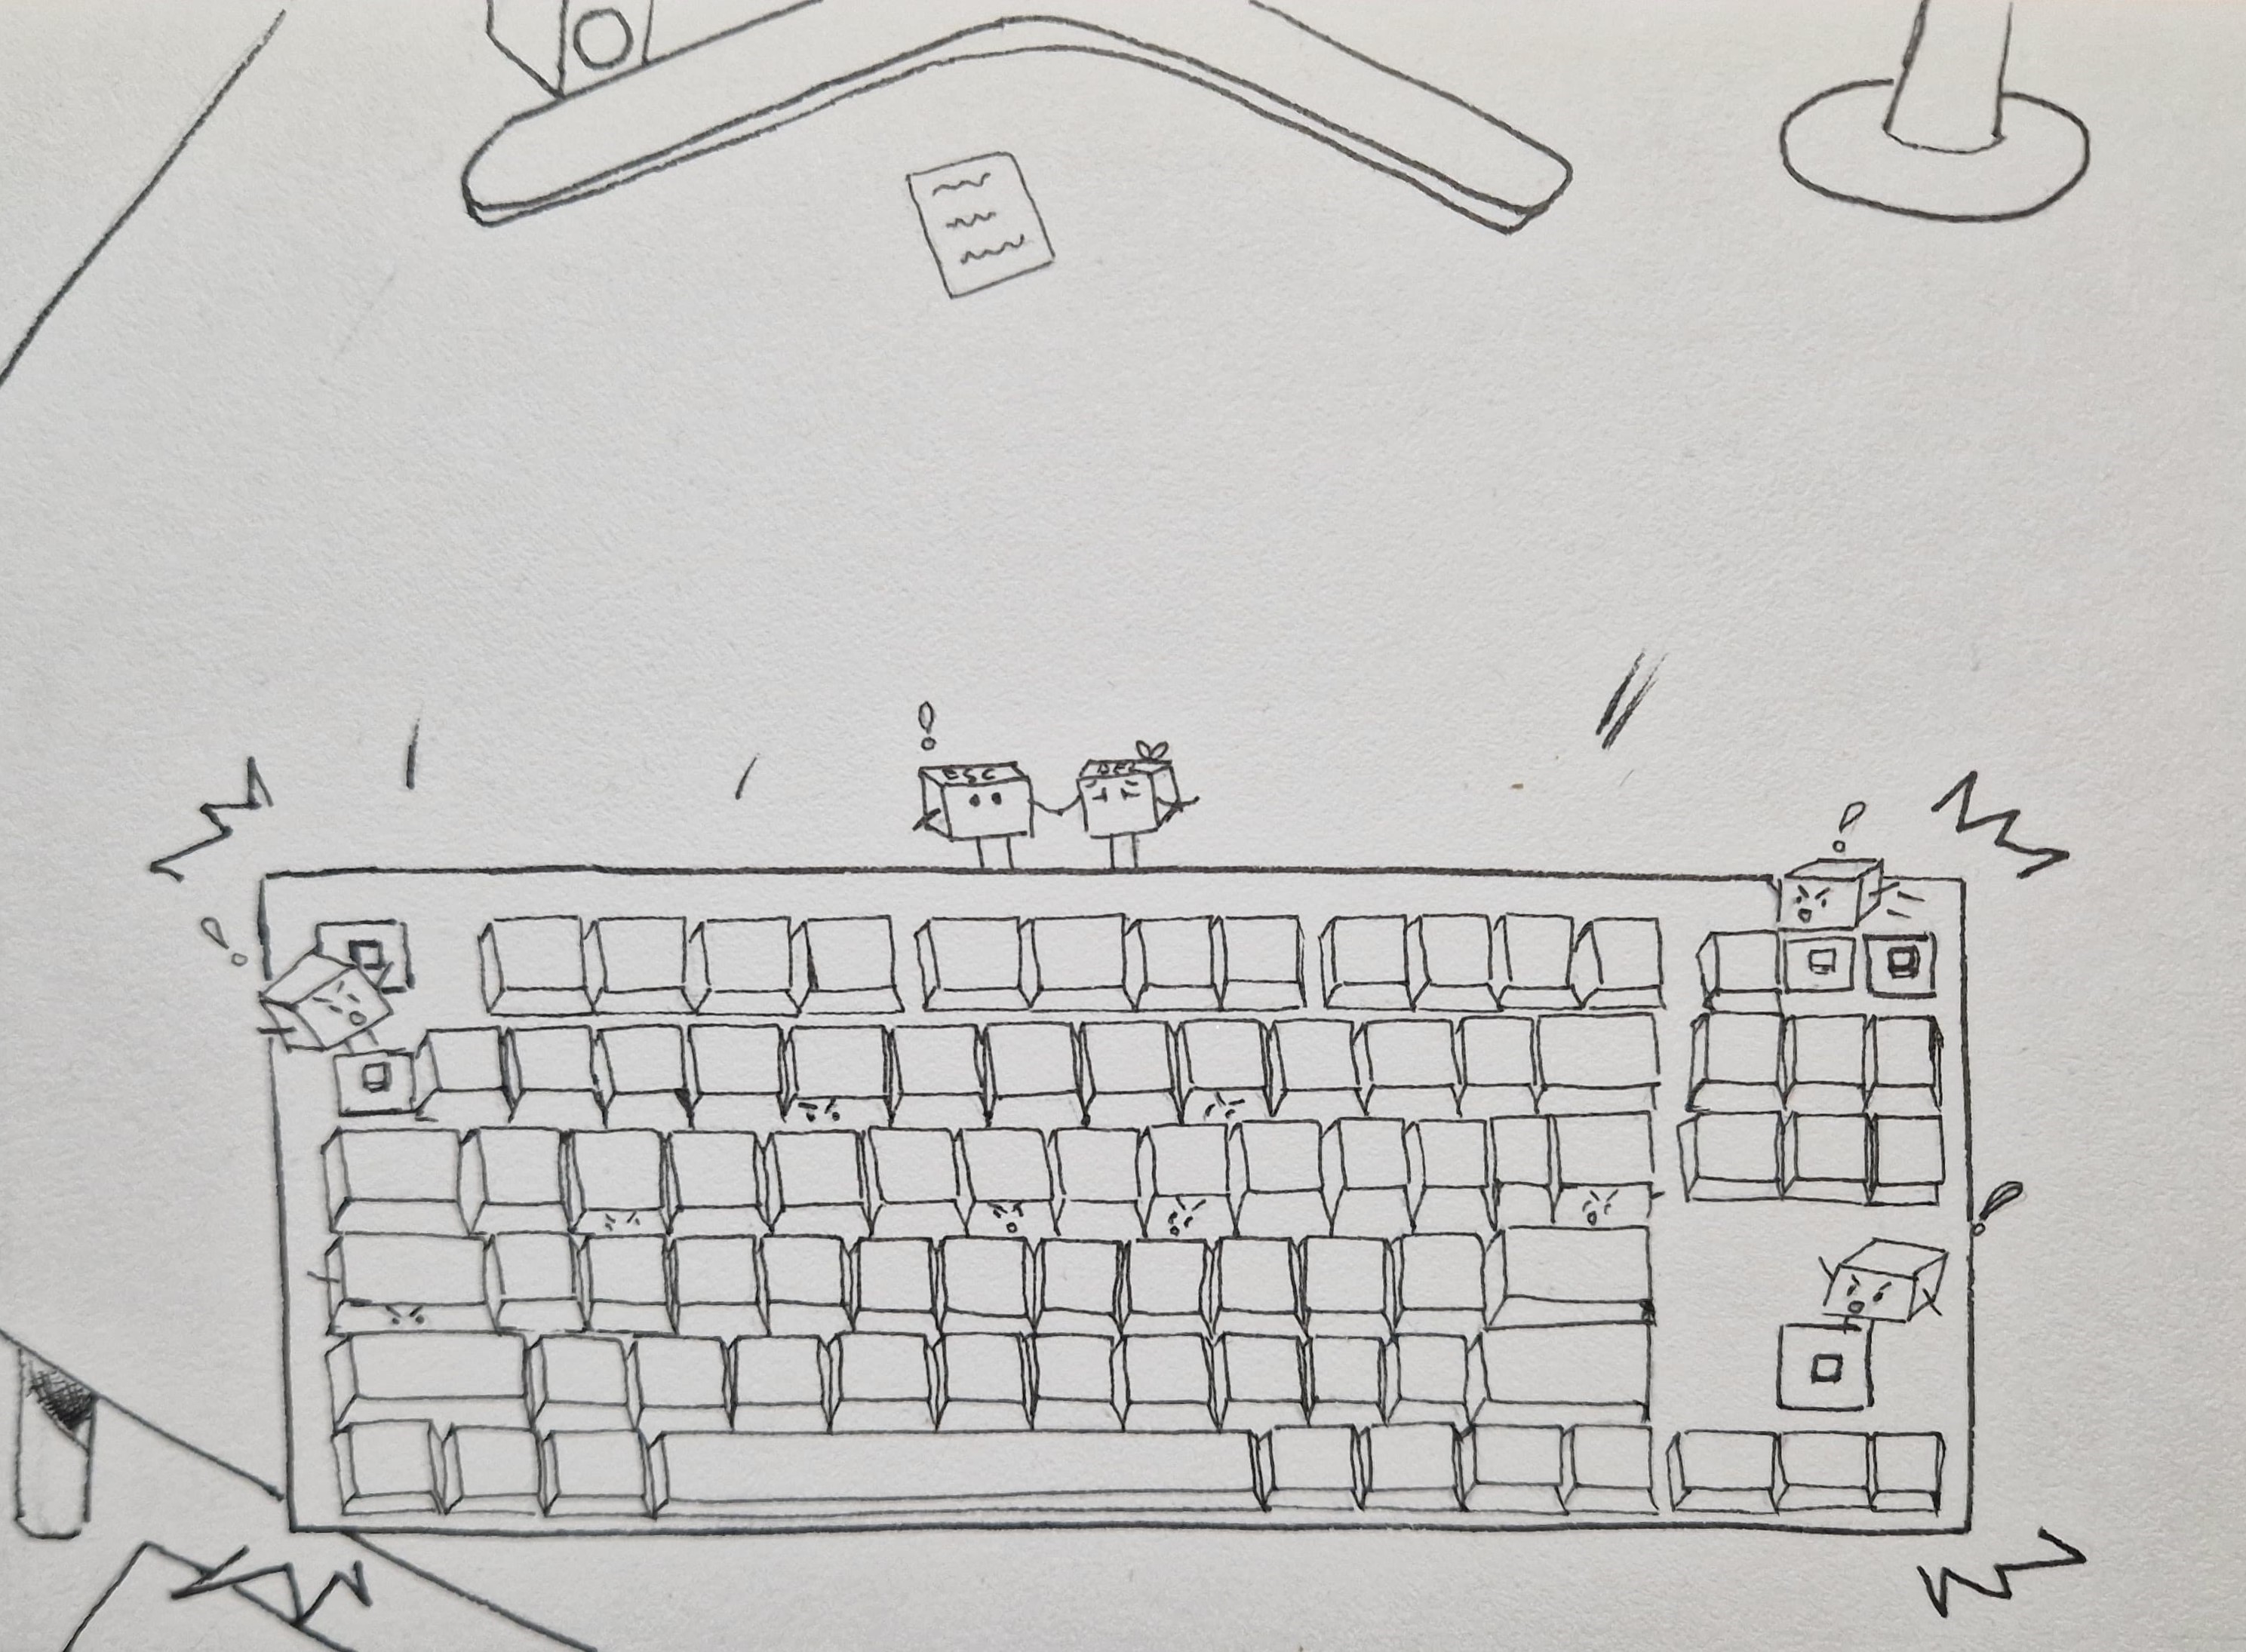 !
ESC DEL
!
!
!